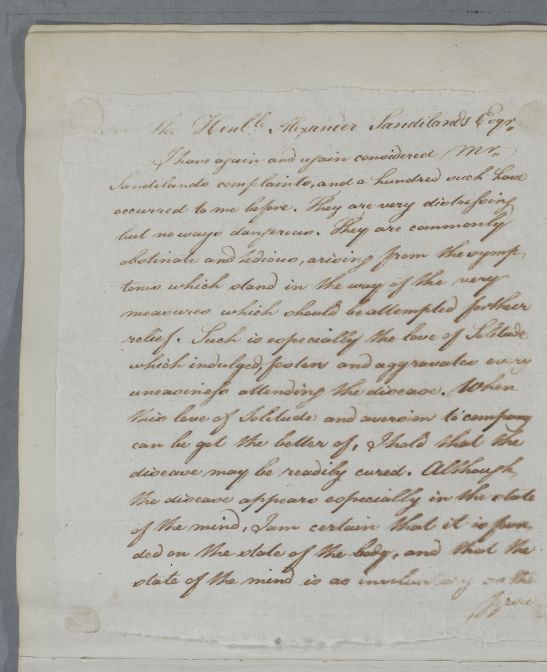 For the Honble. Alexander Sandilands Esqr.
I have again and again considered Mr.
Sandilands complaints, and a hundred such have
occurred to me before. They are very distressing
but no ways dangerous. They are commonly
obstinate and tedious, arising from the symp-
toms which stand in the way of the very
measures which should be attempted for their
relief. Such is especially the love of Solitude
which indulged, fosters and aggravates every
uneasiness attending the disease. When
this love of Solitude and aversion to company
can be got the better of, I hold that the
disease may be readily cured. Although
the disease appears especially in the state
of the mind, I am certain that it is foun
ded on the state of the body, and that the
state of the mind is as involuntary as the